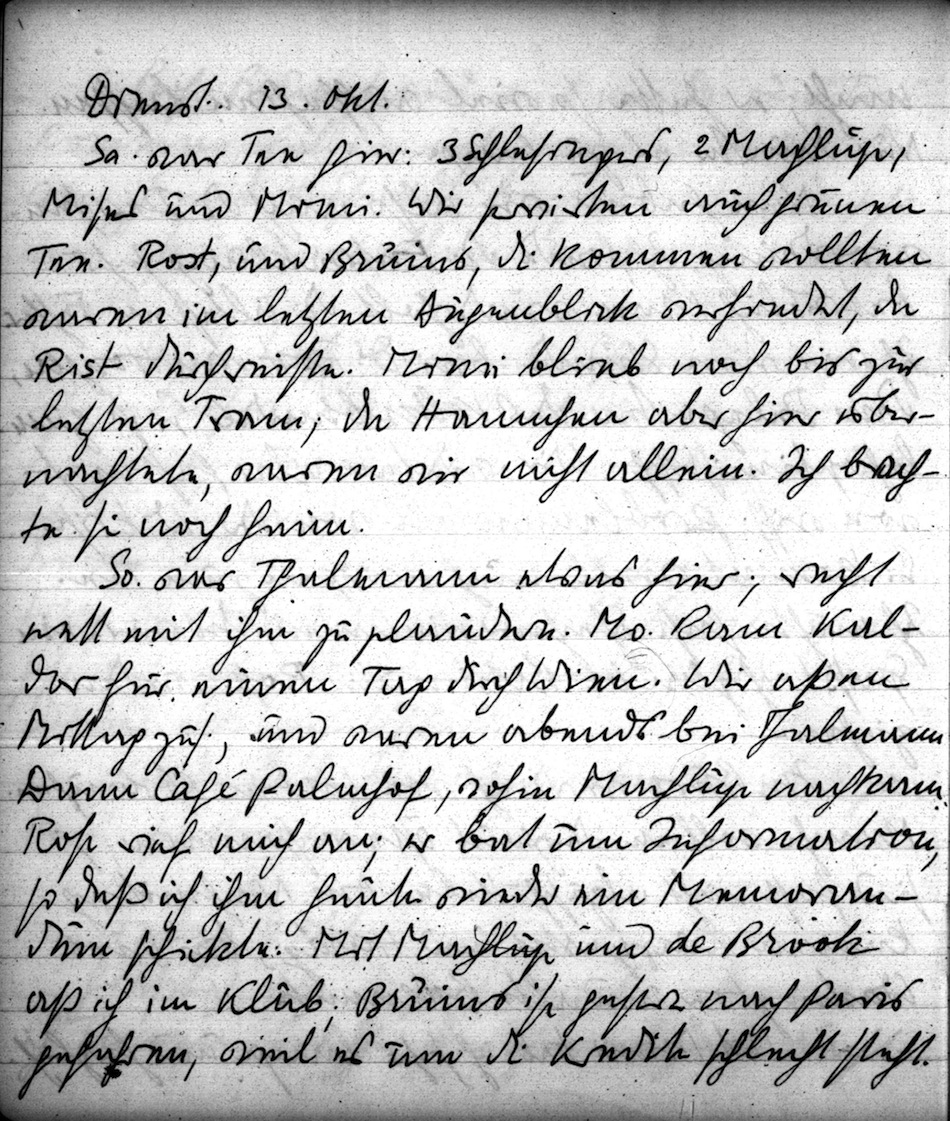 Dienst. 13. Okt.
Sa. war Tee hier: 3 Schlesingers, 2 Machlup,
Mises und Mimi. Wir servierten auch grünen
Tee. Rost, und Bruins, die kommen sollten
waren im letzten Augenblick verhindert, da
Rist durchreiste. Mimi blieb noch bis zur
letzten Tram; da Hannchen aber hier über-
nachtete, waren wir nicht allein. Ich brach-
te sie noch heim.
So. war Thalmann etwas hier; recht
nett mit ihm zu plaudern. Mo. kam Kal-
dor für einen Tag durch Wien. Wir aßen
Mittag zus., und waren abends bei Thalmann
Dann Café Palmhof, wohin Machlup nachkam.
Rost rief mich an; er bat um Information,
so daß ich ihm heute wieder ein Memoran-
dum schickte. Mit Machlup und de Brook
aß ich im Klub, Bruins ist gestern nach Paris
gefahren, weil es um die Kredite schlecht steht.